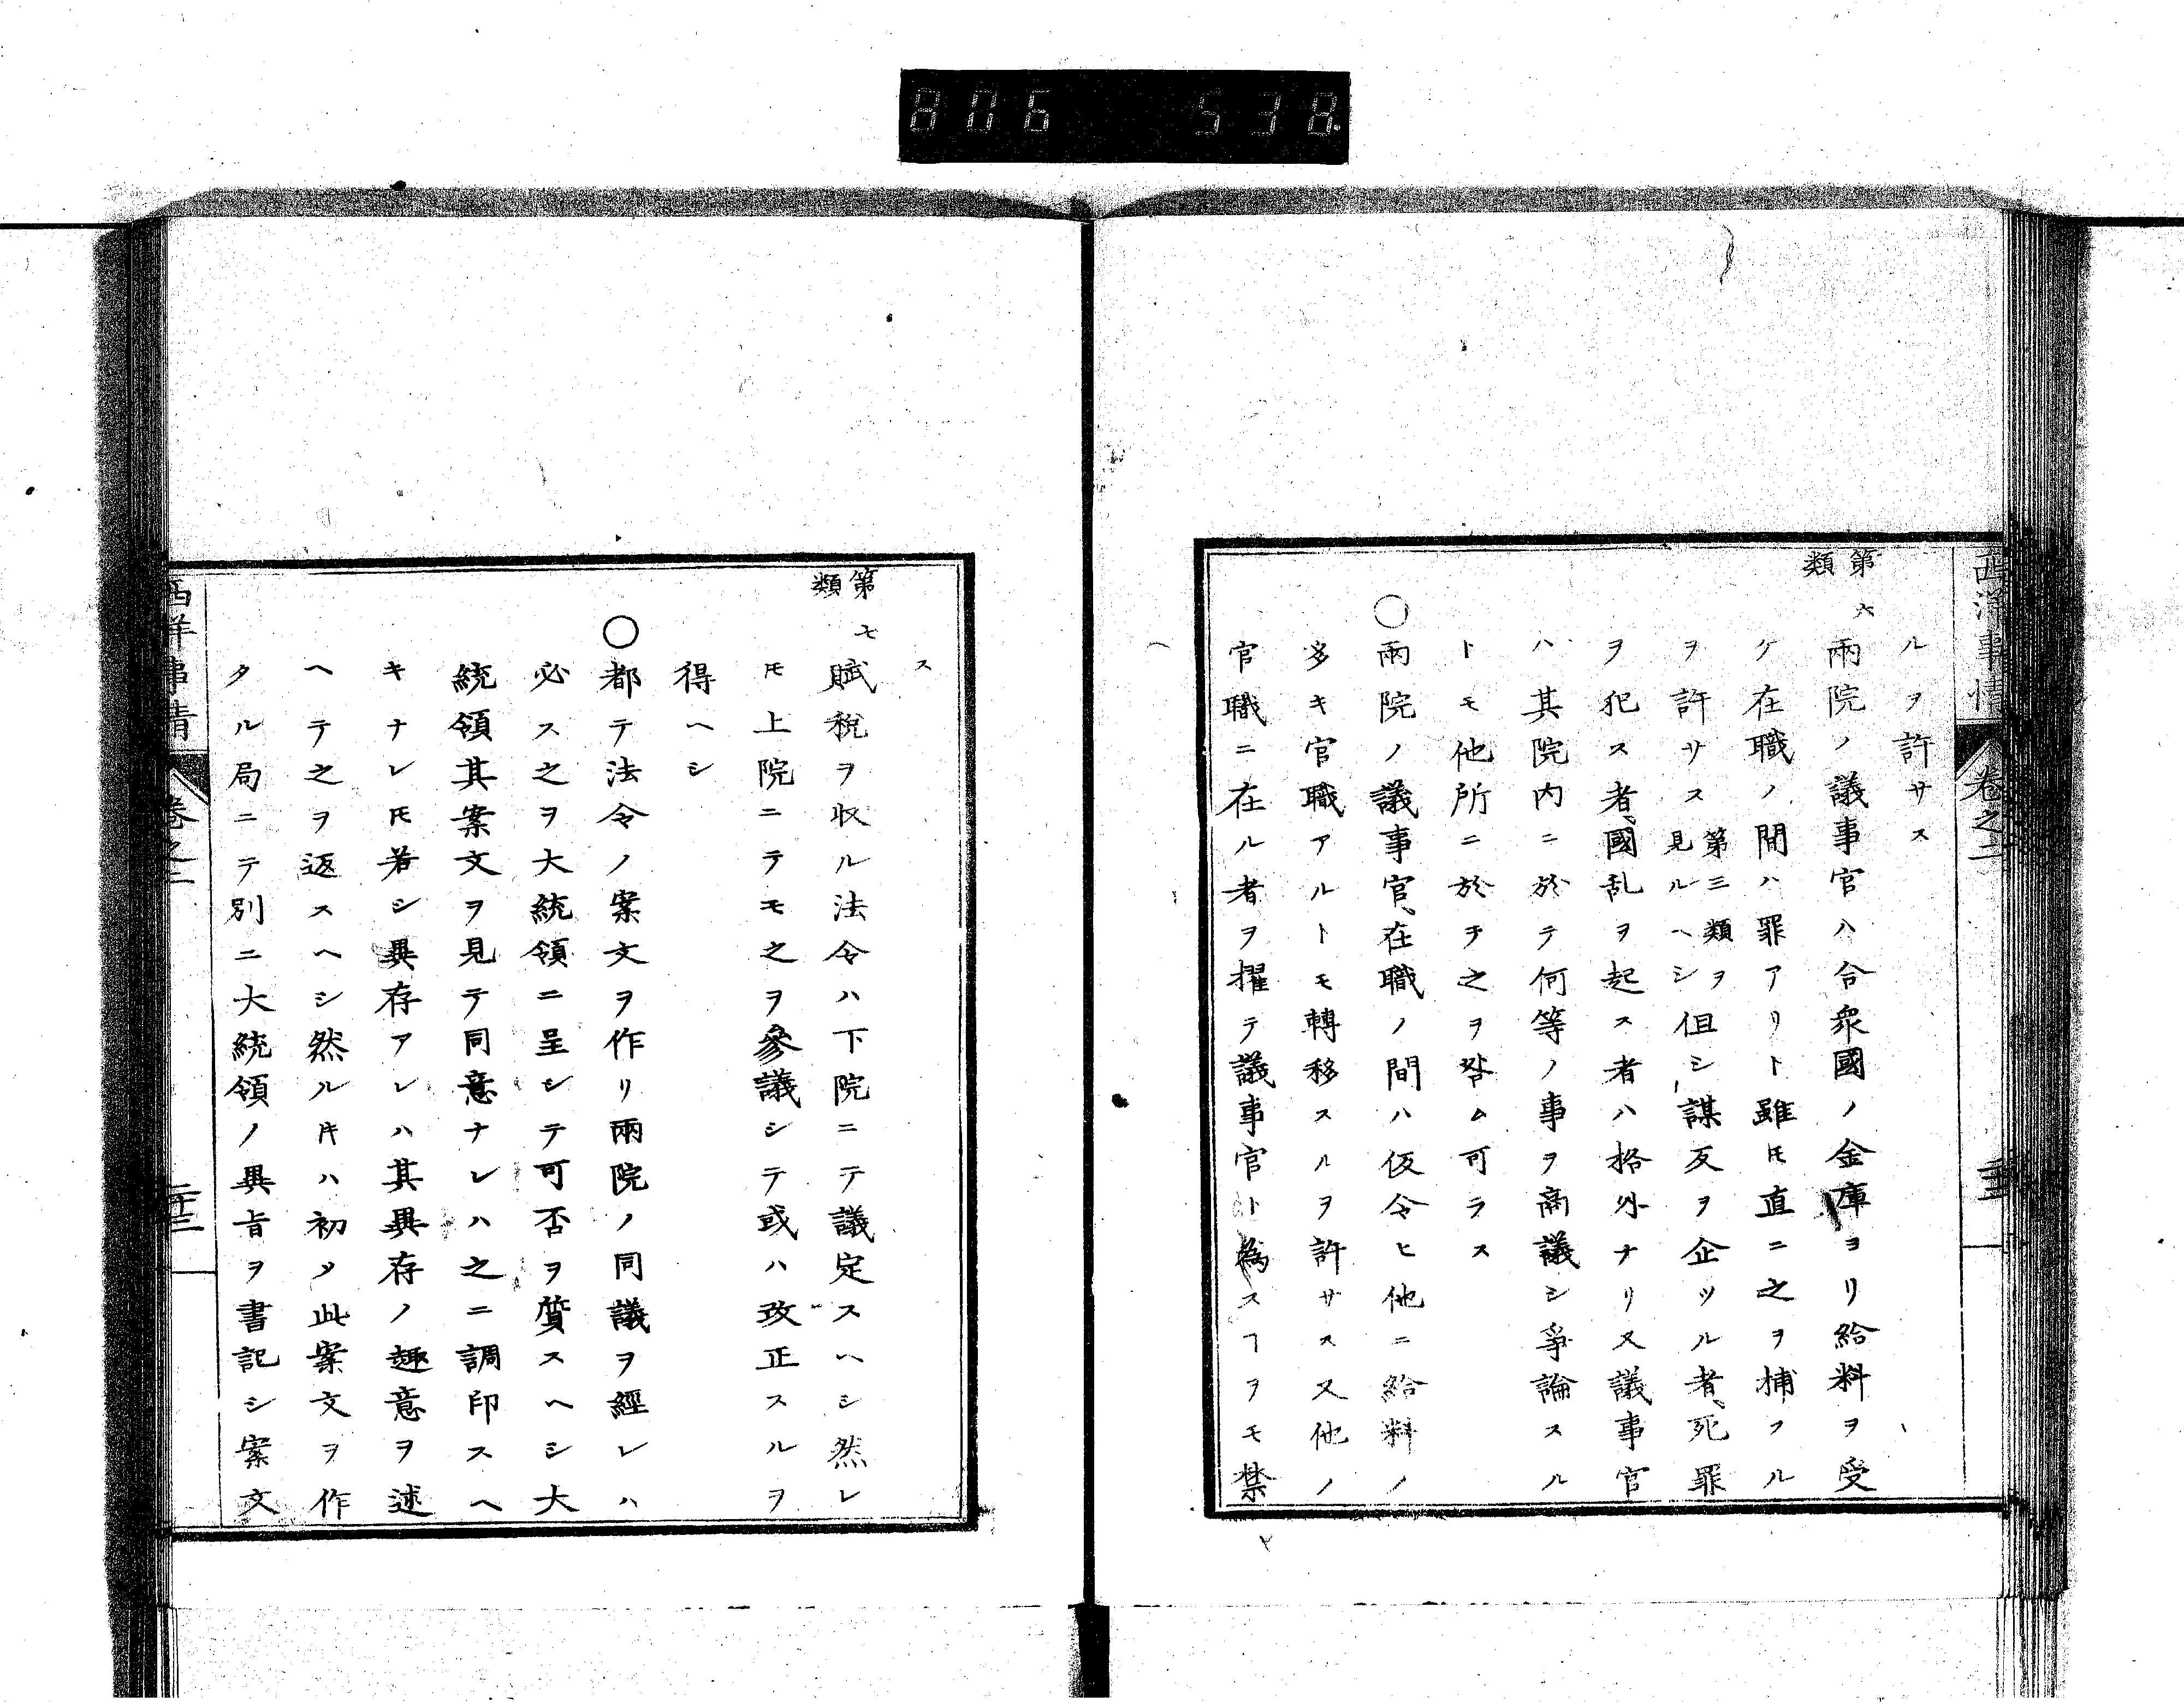 806 538
西洋事情 卷之二
ルヲ許サス
第六類
兩院ノ議事官ハ合衆國ノ金庫ヨリ給料ヲ受
ケ在職ノ間ハ罪アリト雖𪜈直ニ之ヲ捕フル
ヲ許サス第三類ヲ見ルヘシ但シ謀反ヲ企ツル者、死罪
ヲ犯ス者、國乱ヲ起ス者ハ格外ナリ又議事官
ハ其院内ニ於テ何等ノ事ヲ商議シ爭論スル
トモ他所ニ於テ之ヲ咎ム可ラス
○兩院ノ議事官、在職ノ間ハ仮令ヒ他ニ給料ノ
多キ官職アルトモ轉移スルヲ許サス又他ノ
官職ニ在ル者ヲ擢テ議事官ト為スヿヲモ禁
ス
第七類
賦稅ヲ収ル法令ハ下院ニテ議定スヘシ然レ
𪜈上院ニテモ之ヲ參議シテ或ハ改正スルヲ
得ヘシ
○都テ法令ノ案文ヲ作リ兩院ノ同議ヲ經レハ
必ス之ヲ大統領ニ呈シテ可否ヲ質スヘシ大
統領其案文ヲ見テ同意ナレハ之ニ調印スヘ
キナレ𪜈若シ異存アレハ其異存ノ趣意ヲ述
ヘテ之ヲ返スヘシ然ルキハ初メ此案文ヲ作
タル局ニテ別ニ大統領ノ異旨ヲ書記シ案文
西洋事情 卷之二 二十三